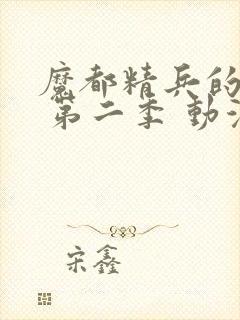 魔都精兵的
第二季 動
宋鑫